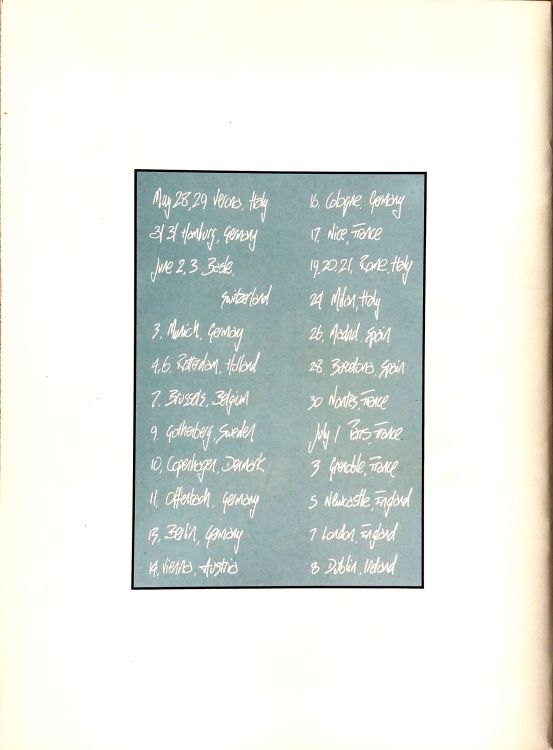 May 28, 29 Verona, Italy
31 Hamburg, Germany
June 2, 3 Basle,
Switzerland
3. Munich, Germany
4, 6. Rotterdam, Holland
7. Brussels, Belgium
9. Gothenberg, Sweden
10, Copenhagen, Denmark
11, Offenbach, Germany
13, Berlin, Germany
14, Vienna, Austria
16, Cologne, Germany
17, Nice, France
19, 20, 21, Rome, Italy
24 Milan, Italy
26, Madrid, Spain
28, Barcelona, Spain
30 Nantes, France
July 1 Paris, France
3 Grenoble, France
5 Newcastle, England
7 London, England
8 Dublin, Ireland